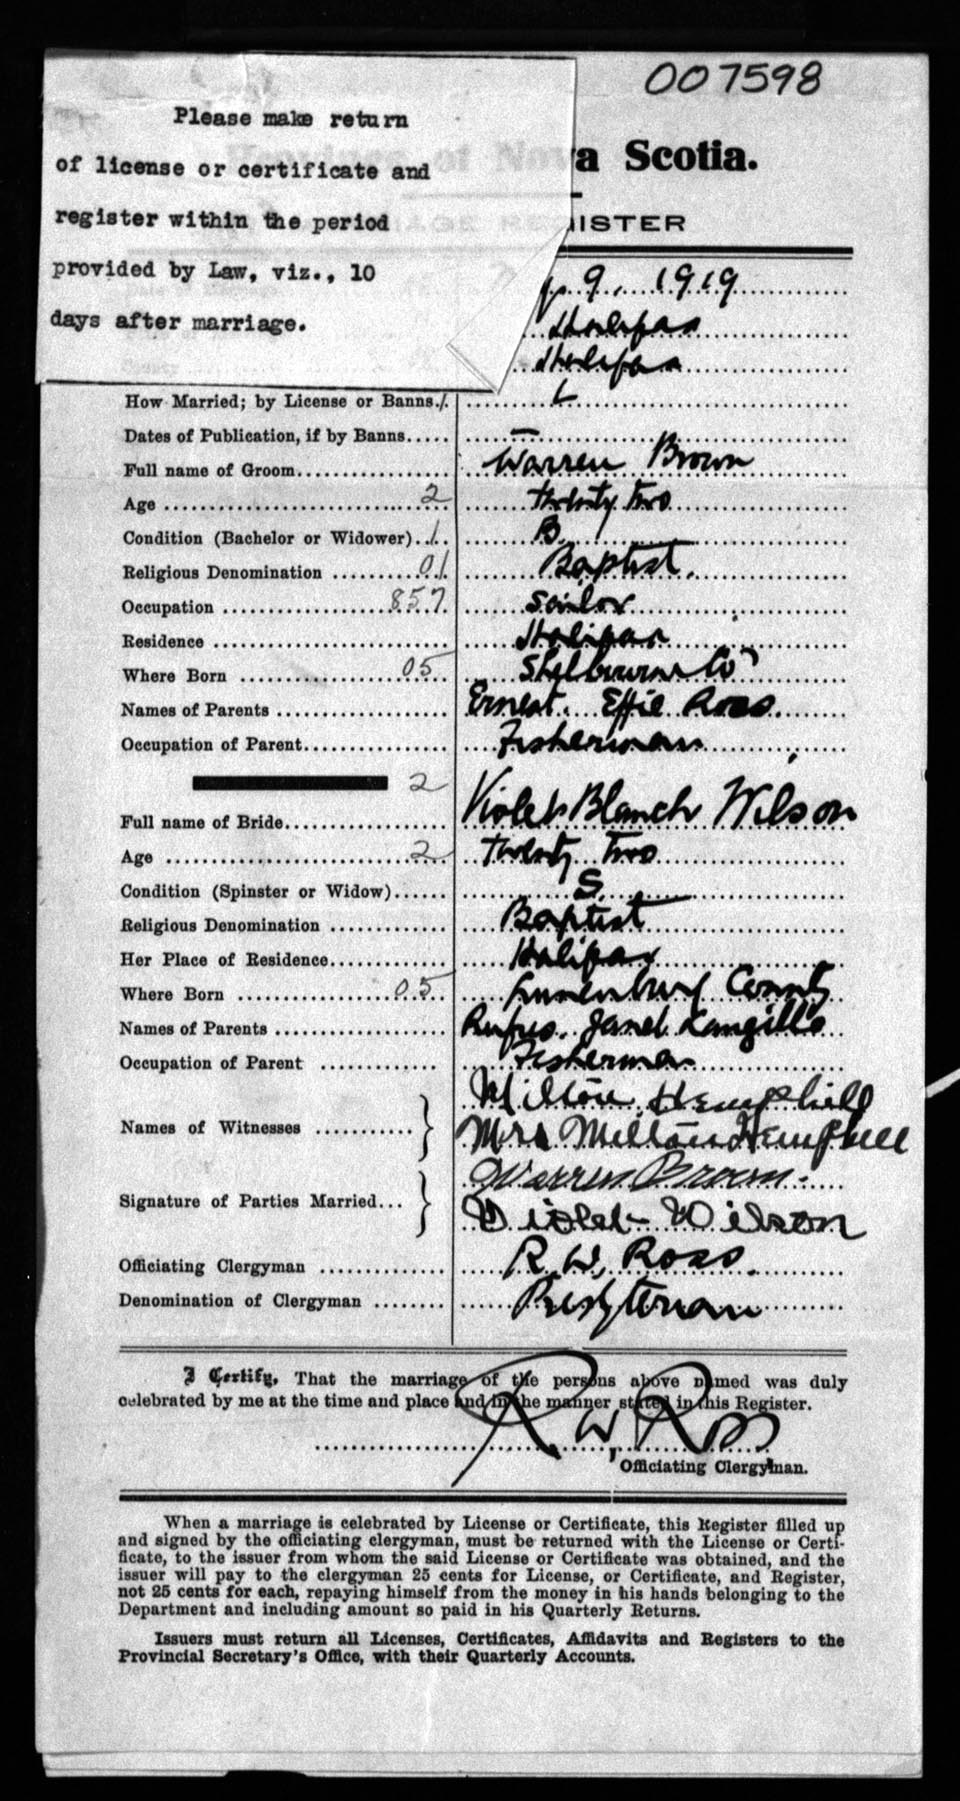 007598
Please make return
of license or certificate and
register within the period
provided by Law, viz., 10
days after marriage.
Province of Nova Scotia.
REGISTER
9, 1919
Halifax
Halifax
How Married; by License or Banns 1 L
Dates of Publication, if by Banns..... —
Full name of Groom Warren Brown
Age 2 twenty two
Condition (Bachelor or Widower) 1 B
Religious Denomination 01 Baptist.
Occupation 857 Sailor
Residence Halifax
Where Born 05 Shelburne Co
Names of Parents Ernest. Effie Ross.
Occupation of Parent Fisherman
2
Full name of Bride Violet Blanch Wilson
Age 2 twenty two
Condition (Spinster or Widow) S
Religious Denomination Baptist
Her Place of Residence Halifax
Where Born 05 Lunenburg County
Names of Parents Rufus. Janet Langille
Occupation of Parent Fisherman
Names of Witnesses Milton Hemphill
Mrs Milton Hemphill
Signature of Parties Married Warren Brown.
Violet Wilson
Officiating Clergyman R. W. Ross.
Denomination of Clergyman Presbyterian
I Certify, That the marriage of the persons above named was duly
celebrated by me at the time and place and in the manner stated in this Register.
R. W. Ross
Officiating Clergyman.
When a marriage is celebrated by License or Certificate, this Register filled up
and signed by the officiating clergyman, must be returned with the License or Certi-
ficate, to the issuer from whom the said License or Certificate was obtained, and the
issuer will pay to the clergyman 25 cents for License, or Certificate, and Register,
not 25 cents for each, repaying himself from the money in his hands belonging to the
Department and including amount so paid in his Quarterly Returns.
Issuers must return all Licenses, Certificates, Affidavits and Registers to the
Provincial Secretary's Office, with their Quarterly Accounts.